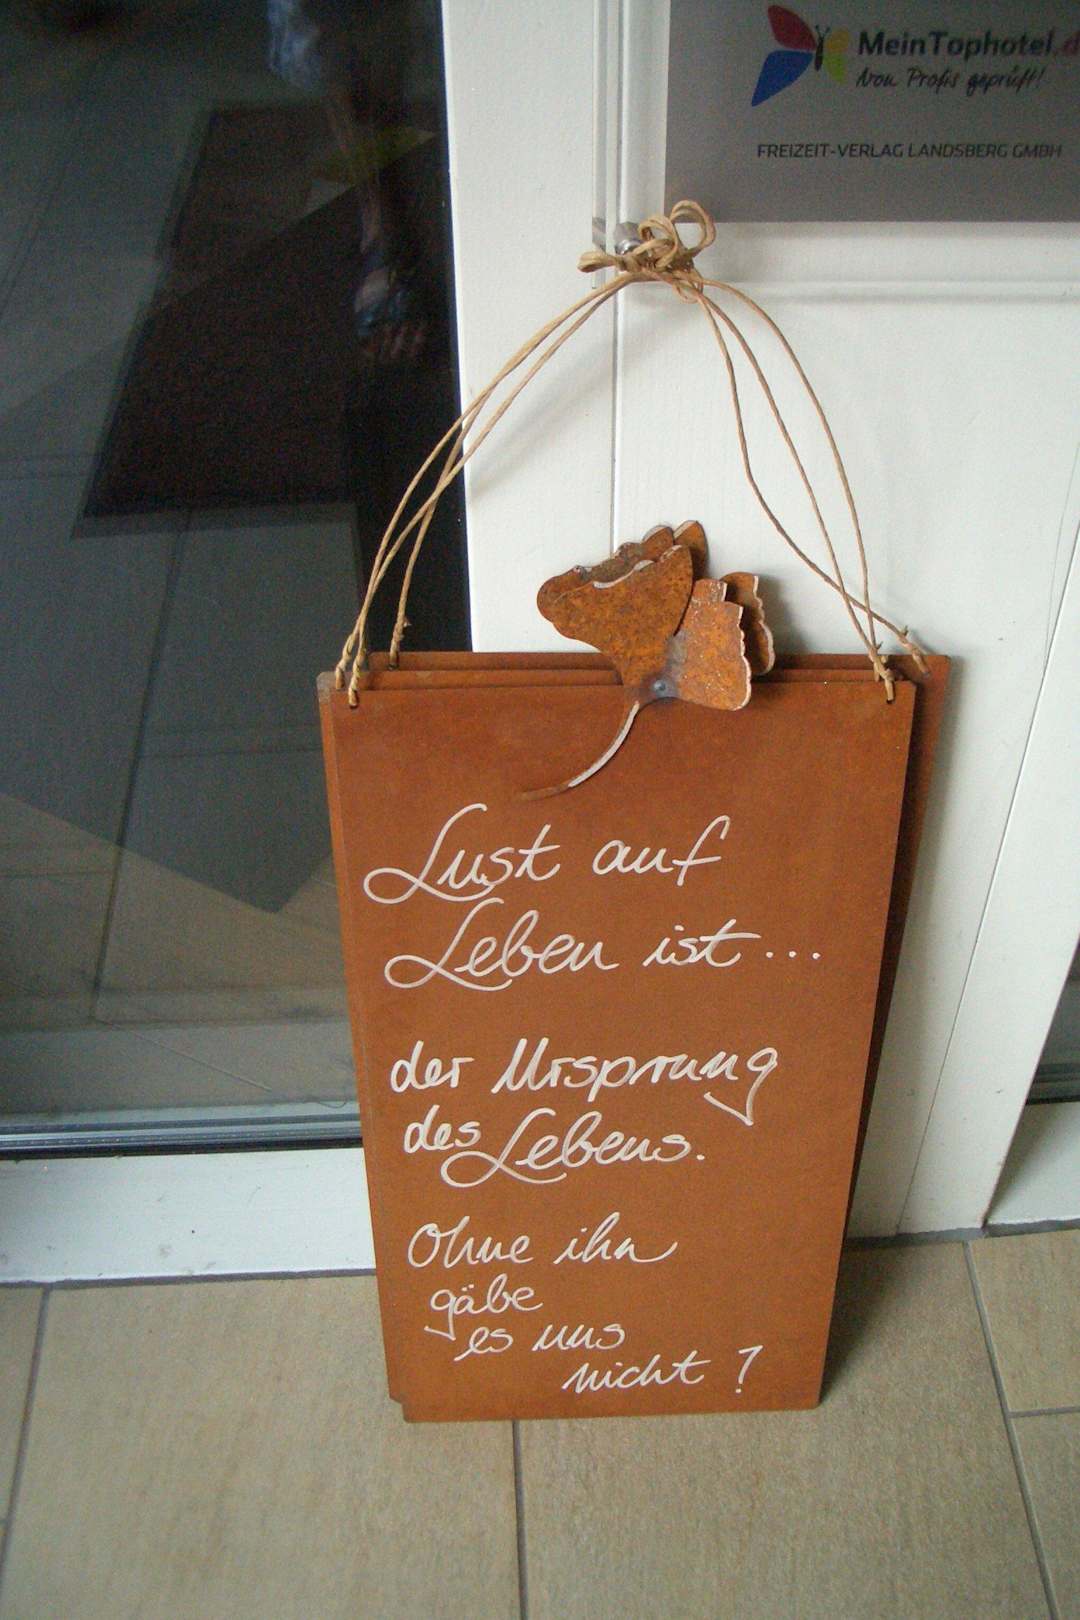 MeinTophotel.d
Von Profis geprüft!
FREIZEIT-VERLAG LANDSBERG GMBH
Lust auf
Leben ist...
der Ursprung
des Lebens.
Ohne ihn
gäbe
es uns
nicht?